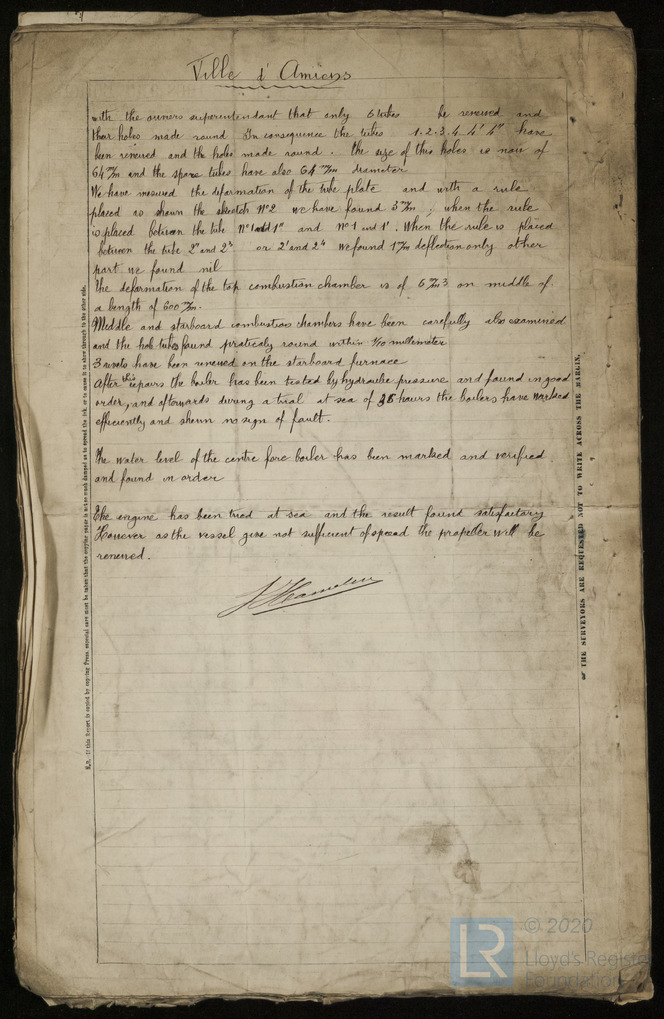 Ville d'Amiens
with the owners superintendant that only 6 tubes be renewed and
their holes made round In consequence the tubes 1.2.3.4.4' 4" have
been renewed and the holes made round. the size of this holes is now of
64 m/m and the spare tubes have also 64 m/m diameter
We have mesured the deformation of the tube plate and with a rule
placed as shewn the skeetch Nº2 we have found 3 m/m; when the rule
is placed between the tube Nº1 and 1" and nº1 and 1'. When the rule is placed
between the tube 2" and 2³ or 2' and 2⁴ we found 1 m/m deflection only other
part we found nil
The deformation of the top combustion chamber is of 5 m/m 3 on middle of
a length of 600 m/m.
Middle and starboard combustion chambers have been carefully also examined
and the hole tubes found praticaly round within 4/10 millemeter
3 rivets have been renewed on the starboard furnace
After this repairs the boiler has been tested by hydraulic pressure and found in good
order, and afterwards during a trial at sea of 36 hours the boilers have worked
efficiently and shewn no sign of fault.
The water level of the centre fore boiler has been marked and verified
and found in order
The engine has been tried at sea and the result found satisfactory
However as the vessel give not sufficient of speed the propeller will be
renewed.
N.B.-If this Report is copied by copying Press, especial care must be taken that the copying paper is not so much damped as to spread the ink, or to cause it to show through to the other side.
THE SURVEYORS ARE REQUESTED NOT TO WRITE ACROSS THE MARGIN.
LR
© 2020
Lloyd's Register
Foundation